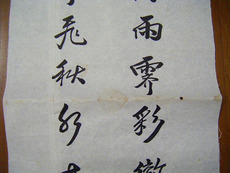 雨霽彩徹
飛秋水